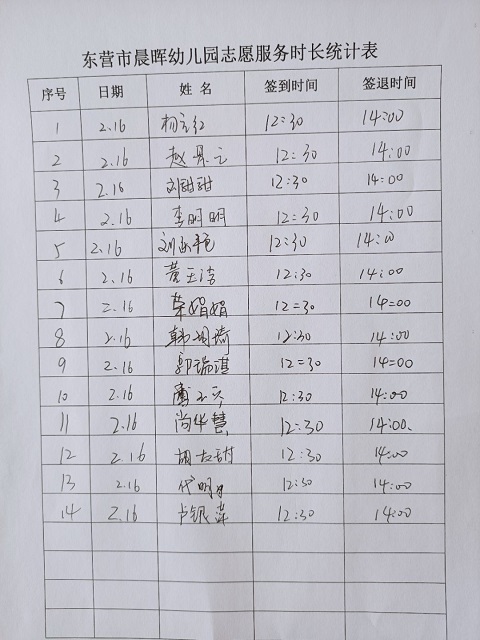 东营市晨晖幼儿园志愿服务时长统计表
序号 日期 姓名 签到时间 签退时间
1 2.16 杨立红 12:30 14:00
2 2.16 赵 12:30 14:00
3 2.16 刘甜甜 12:30 14:00
4 2.16 李明明 12:30 14:00
5 2.16 刘 12:30 14:00
6 2.16 黄玉洁 12:30 14:00
7 2.16 荣娟娟 12:30 14:00
8 2.16 韩 琦 12:30 14:00
9 2.16 郭瑞淇 12:30 14:00
10 2.16 12:30 14:00
11 2.16 尚华慧 12:30 14:00.
12 2.16 胡 12:30 14:00
13 2.16 代明 12:30 14:00
14 2.16 卢银萍 12:30 14:00